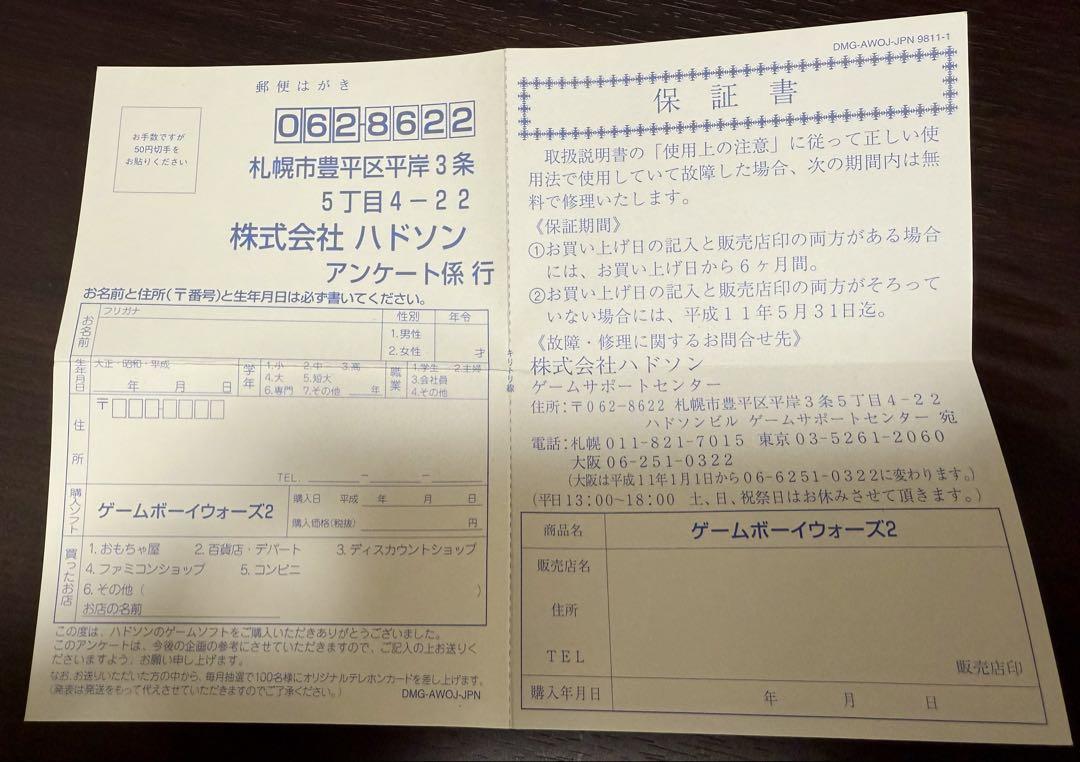 郵便はがき
お手数ですが
50円切手を
お貼りください
062-8622
札幌市豊平区平岸3条
5丁目4-22
株式会社 ハドソン
アンケート係 行
お名前と住所(〒番号)と生年月日は必ず書いてください。
お名前
フリガナ
性別
年令
1.男性
2.女性
才
生年月日
大正・昭和・平成
年 月 日
学年
1.小 2.中 3.高
4.大 5.短大
6.専門 7.その他 年
職業
1.学生 2.主婦
3.会社員
4.その他
住所
〒
TEL. - -
購入ソフト
ゲームボーイウォーズ2
購入日 平成 年 月 日
購入価格(税抜) 円
買ったお店
1.おもちゃ屋 2.百貨店・デパート 3.ディスカウントショップ
4.ファミコンショップ 5.コンビニ
6.その他( )
お店の名前
この度は、ハドソンのゲームソフトをご購入いただきありがとうございました。
このアンケートは、今後の企画の参考にさせていただきますので、ご記入の上お送りく
ださいますよう、お願い申し上げます。
なお、お送りいただいた方の中から、毎月抽選で100名様にオリジナルテレホンカードを差し上げます。
(発表は発送をもって代えさせていただきますのでご了承ください。)
DMG-AWOJ-JPN
キリトリ線
DMG-AWOJ-JPN 9811-1
保証書
取扱説明書の「使用上の注意」に従って正しい使
用法で使用していて故障した場合、次の期間内は無
料で修理いたします。
《保証期間》
①お買い上げ日の記入と販売店印の両方がある場合
には、お買い上げ日から6ヶ月間。
②お買い上げ日の記入と販売店印の両方がそろって
いない場合には、平成11年5月31日迄。
《故障・修理に関するお問合せ先》
株式会社ハドソン
ゲームサポートセンター
住所:〒062-8622 札幌市豊平区平岸3条5丁目4-22
ハドソンビル ゲームサポートセンター 宛
電話:札幌 011-821-7015 東京 03-5261-2060
大阪 06-251-0322
(大阪は平成11年1月1日から06-6251-0322に変わります。)
(平日13:00~18:00 土、日、祝祭日はお休みさせて頂きます。)
商品名
ゲームボーイウォーズ2
販売店名
住所
TEL
販売店印
購入年月日
年 月 日